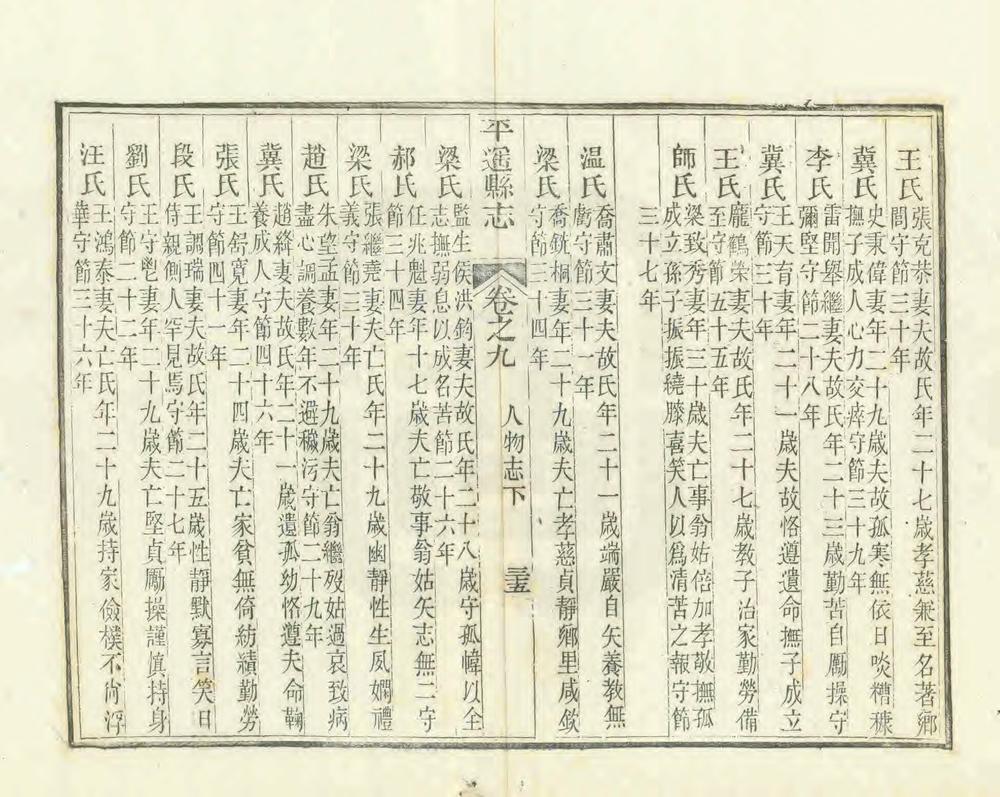 王氏
張克恭妻夫故氏年二十七歲孝慈兼至名著鄉
閭守節三十年
冀氏
史秉偉妻年二十九歲夫故孤寒無依日啖糟糠
撫子成人心力交瘁守節三十九年
李氏
雷聞舉繼妻夫故氏年二十三歲勤苦自勵操守
彌堅守節二十八年
冀氏
王天育妻年二十一歲夫故恪遵遺命撫子成立
守節三十年
王氏
龐鶴榮妻夫故氏年二十七歲教子治家勤勞備
至守節五十五年
師氏
梁致秀妻年三十歲夫亡事翁姑倍加孝敬撫孤
成立孫子振振繞膝喜笑人以爲清苦之報守節
三十七年
温氏
喬肅文妻夫故氏年二十一歲端嚴自矢養教無
虧守節三十一年
梁氏
喬銑桐妻年二十九歲夫亡孝慈貞靜鄉里咸欽
守節三十四年
平遥縣志
卷之九
人物志下
三五
梁氏
監生侯洪鈞妻夫故氏年二十八歲守孤幃以全
志撫弱息以成名苦節二十六年
郝氏
任兆魁妻年十七歲夫亡敬事翁姑矢志無二守
節三十四年
梁氏
張繼堯妻夫亡氏年二十九歲幽靜性生夙嫻禮
義守節三十年
趙氏
朱望孟妻年二十九歲夫亡翁繼歿姑過哀致病
盡心調養數年不避穢污守節二十九年
冀氏
趙絳妻夫故氏年二十一歲遺孤幼恪遵夫命鞠
養成人守節四十六年
張氏
王錫寬妻年二十四歲夫亡家貧無倚紡績勤勞
守節四十一年
段氏
王調瑞妻夫故氏年二十五歲性靜默寡言笑日
侍親側人罕見焉守節二十七年
劉氏
王守鬯妻年二十九歲夫亡堅貞勵操謹慎持身
守節二十二年
汪氏
王鴻泰妻夫亡氏年二十九歲持家儉樸不尚浮
華守節三十六年